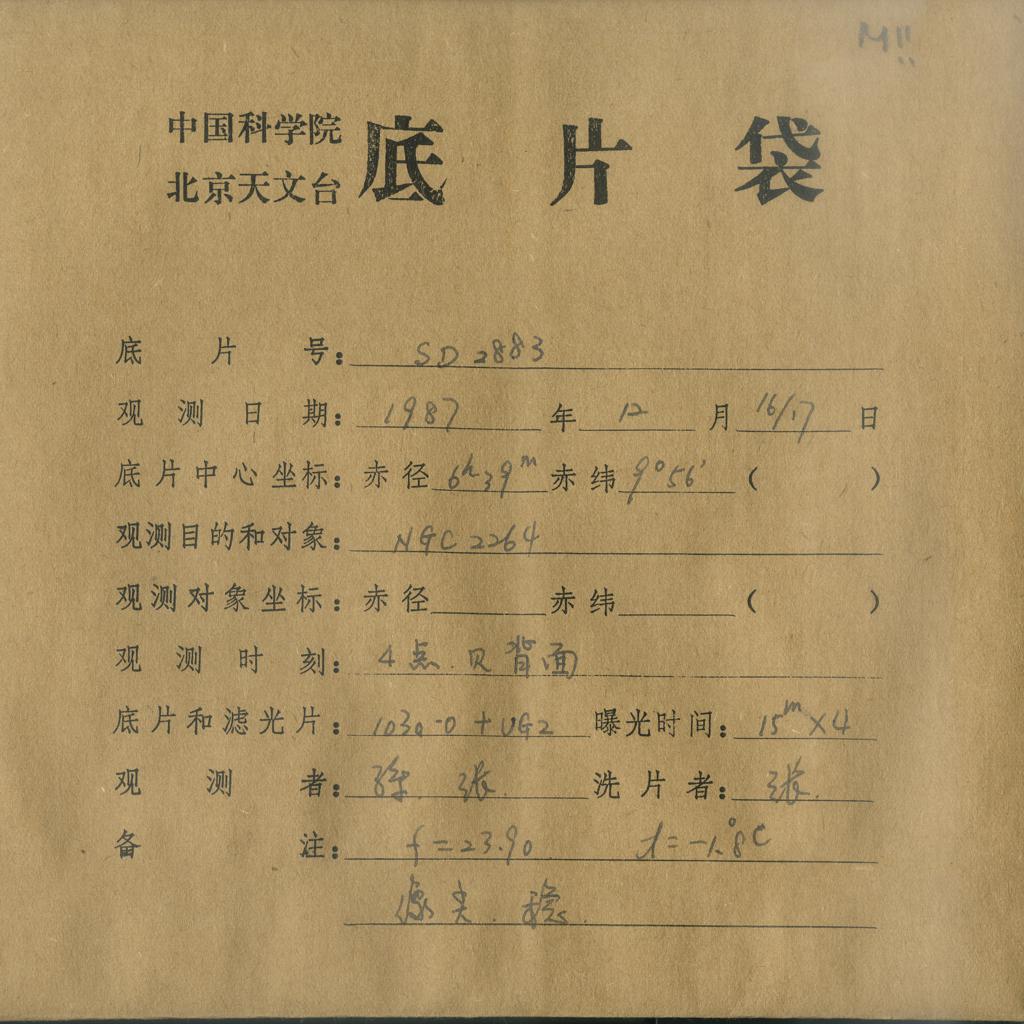 M!!
中国科学院
北京天文台 底片袋
底片号: SD 2883
观测日期: 1987 年 12 月 16/17 日
底片中心坐标: 赤径 6h39m 赤纬 9°56′ ( )
观测目的和对象: NGC 2264
观测对象坐标: 赤径 赤纬 ( )
观测时刻: 4点.见背面
底片和滤光片: 103a-O + UG2 曝光时间: 15m×4
观测者: 张. 洗片者: 张.
备注: f=23.90 t=-1.8°C
像尖.稳.